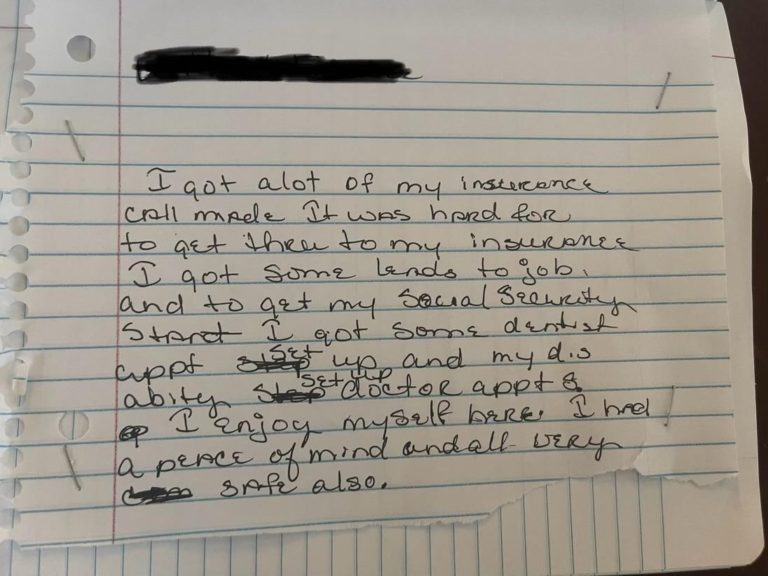 I got alot of my insurance
call made It was hard for
to get thru to my insurance
I got some lends to job.
and to get my Social Security
Start I got some dentist
appt set up and my dis
abity set up doctor appt &
I enjoy myself here. I had
a peace of mind and all very
safe also.